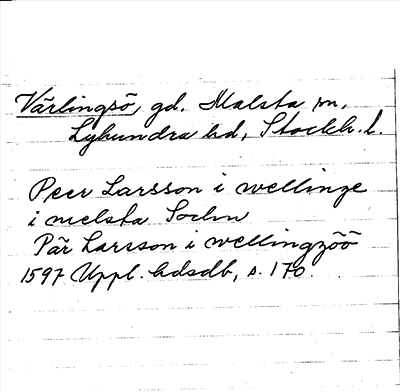 Värlingsö, gd. Malsta sn,
Lyhundra hd, Stockh. l.
Peer Larsson i wellinge
i melsta Sochn
Pär Larsson i wellingzöö
1597 Uppl. hdsdb, s. 170.